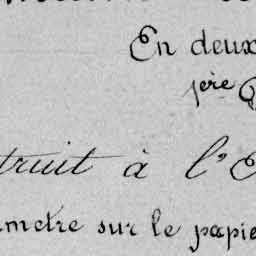 En deux
1ère
truit à l'E
metre sur le papie